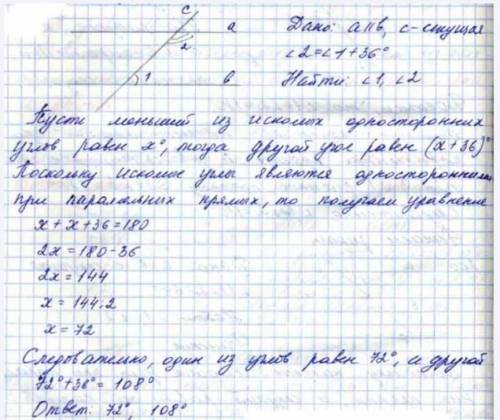 c
a
2
1
в
Дано: a||в, c-секущая
∠2=∠1+36°
Найти: ∠1, ∠2
Пусть меньший из искомых односторонних
углов равен x°, тогда другой угол равен (x+36)°
Поскольку искомые углы являются односторонними
при паралельных прямых, то получаем уравнение
x+x+36=180
2x=180-36
2x=144
x=144:2
x=72
Следовательно, один из углов равен 72°, и другой
72°+36°=108°
Ответ: 72°, 108°